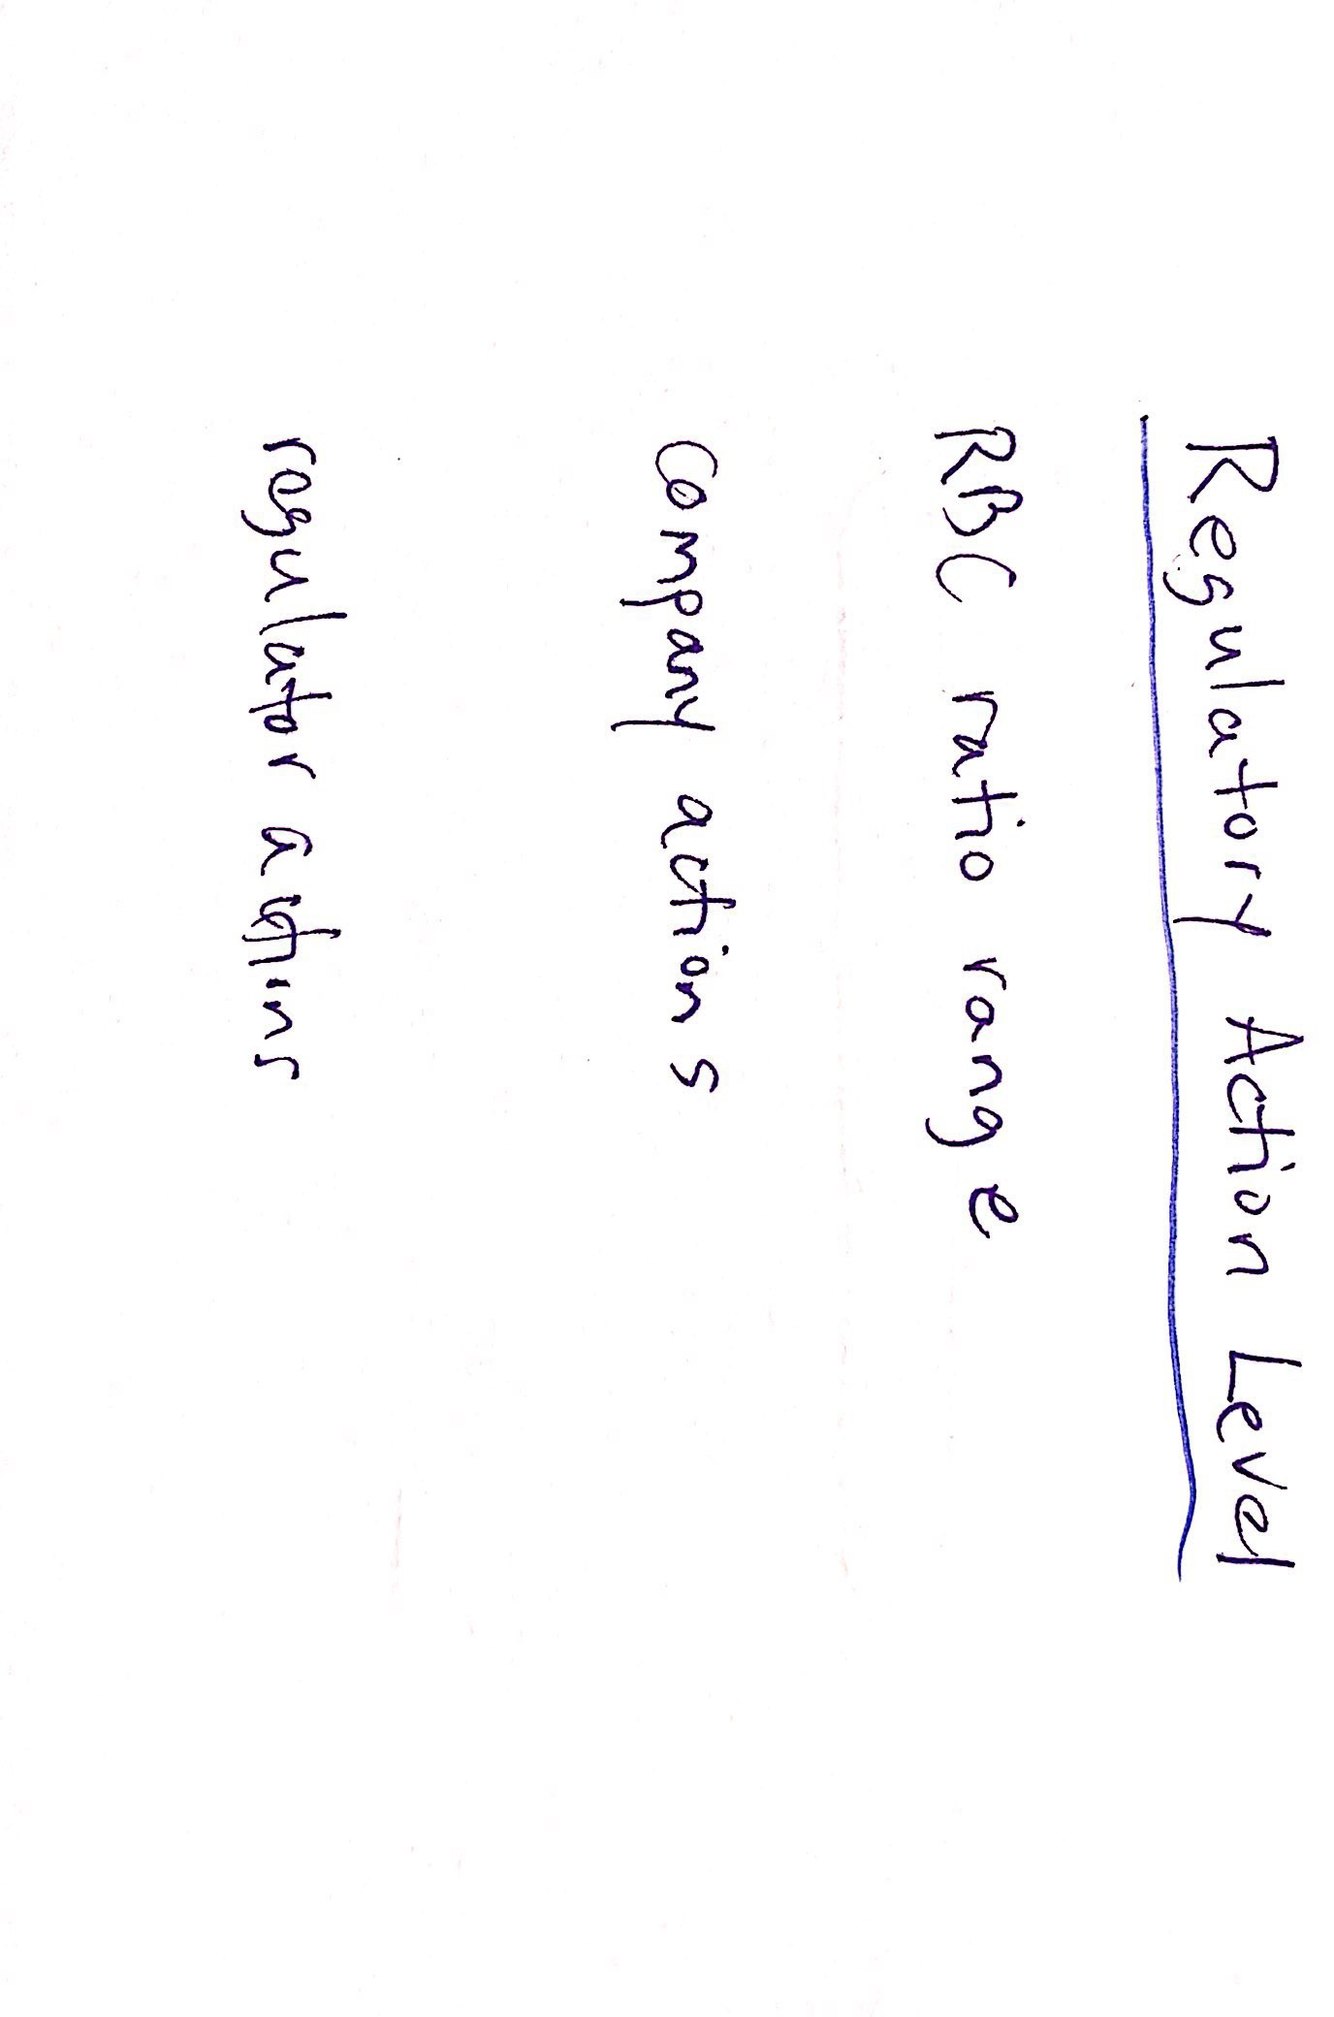 Regulatory Action Level
RBC ratio range
Company actions
regulator actins